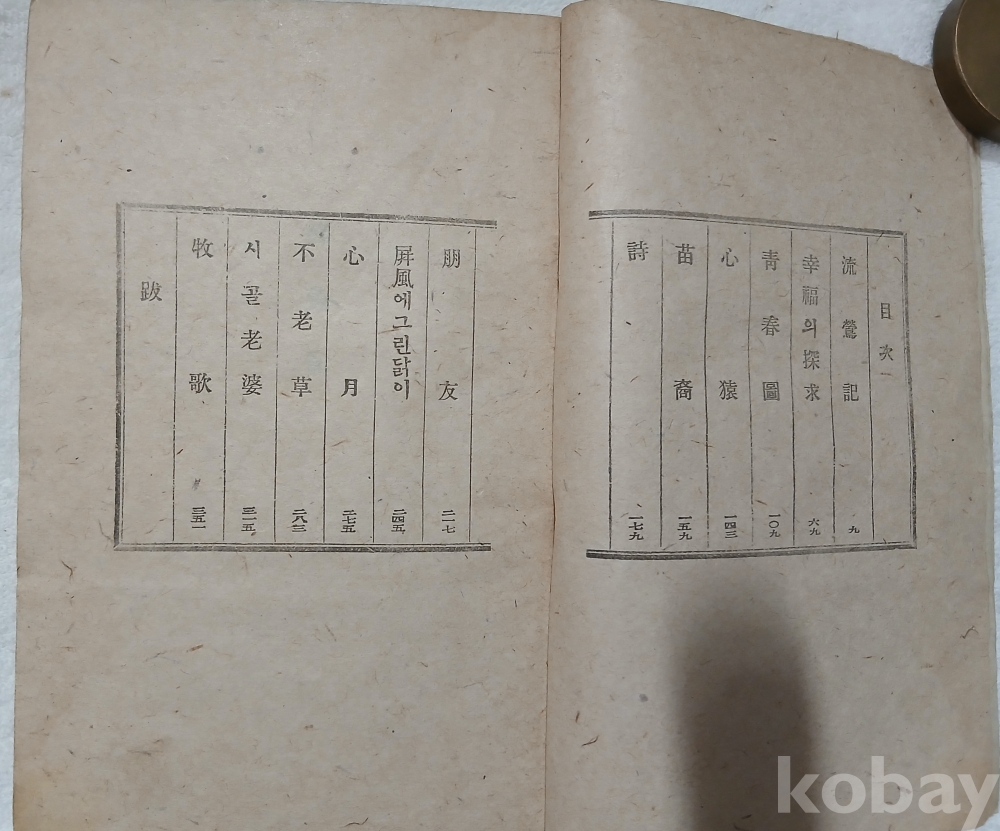 目次
流鶯記 九
幸福의探求 六九
靑春圖 一〇九
心猿 一四三
苗裔 一五九
詩 一七九
朋友 二一七
屛風에그린닭이 二四五
心月 二七五
不老草 二八三
시골老婆 三一五
牧歌 三五一
跋
kobay